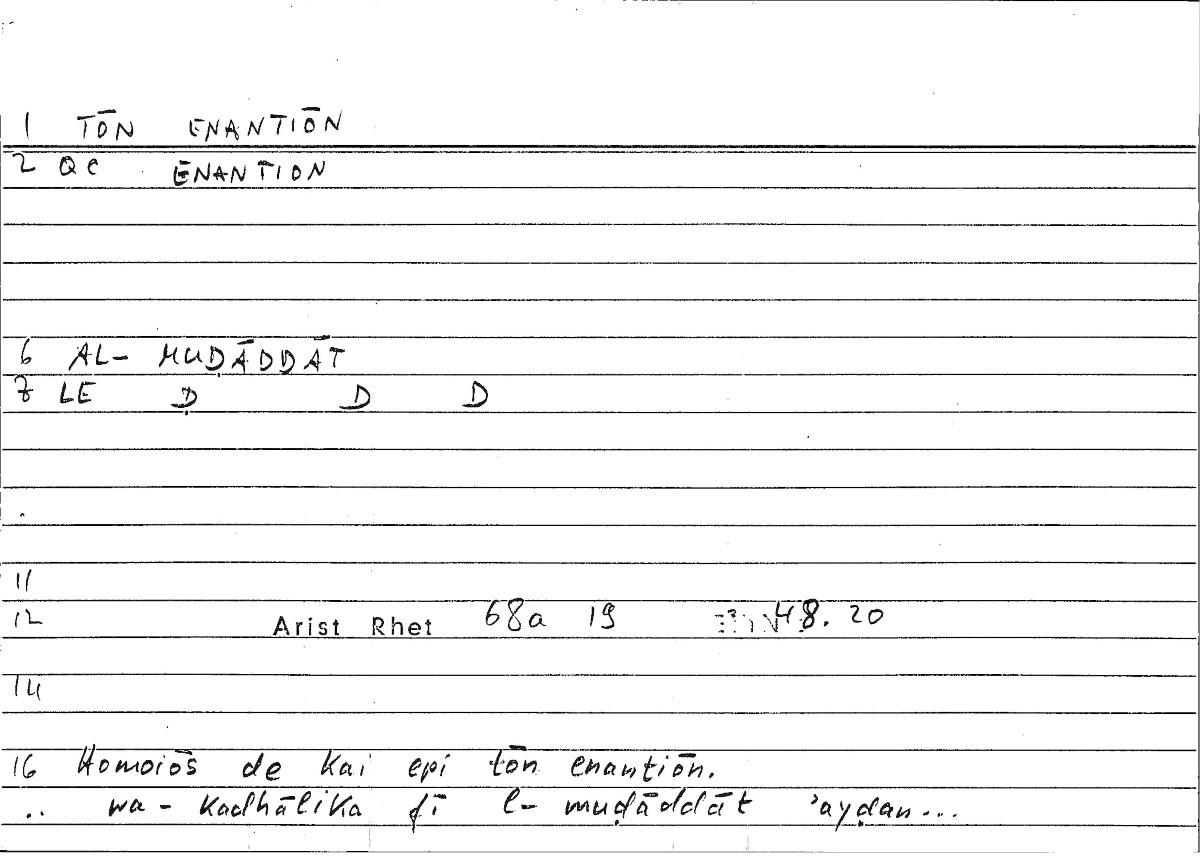 1 TŌN ENANTIŌN
2 QC ENANTION
6 AL- MUḌĀDDĀT
7 LE Ḍ D D
11
12 Arist Rhet 68a 19 48.20
14
16 Homoiōs de kai epi tōn enantiōn.
.. wa-kadhālika fī l-muḍāddāt ʾayḍan...